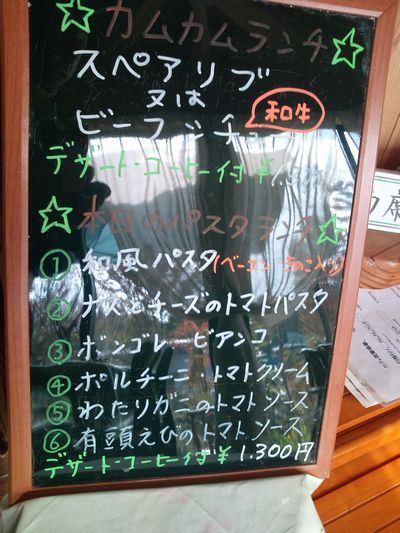 ☆カムカムランチ☆
スペアリブ
又は
和牛
ビーフシチュー
デザート・コーヒー付¥
☆本日のパスタランチ☆
① 和風パスタ(ベーコン きのこ入り)
② ナスとチーズのトマトパスタ
③ ボンゴレ ビアンコ
④ ポルチーニ・トマトクリーム
⑤ わたりガニのトマトソース
⑥ 有頭えびのトマトソース
デザート・コーヒー付¥1.300円